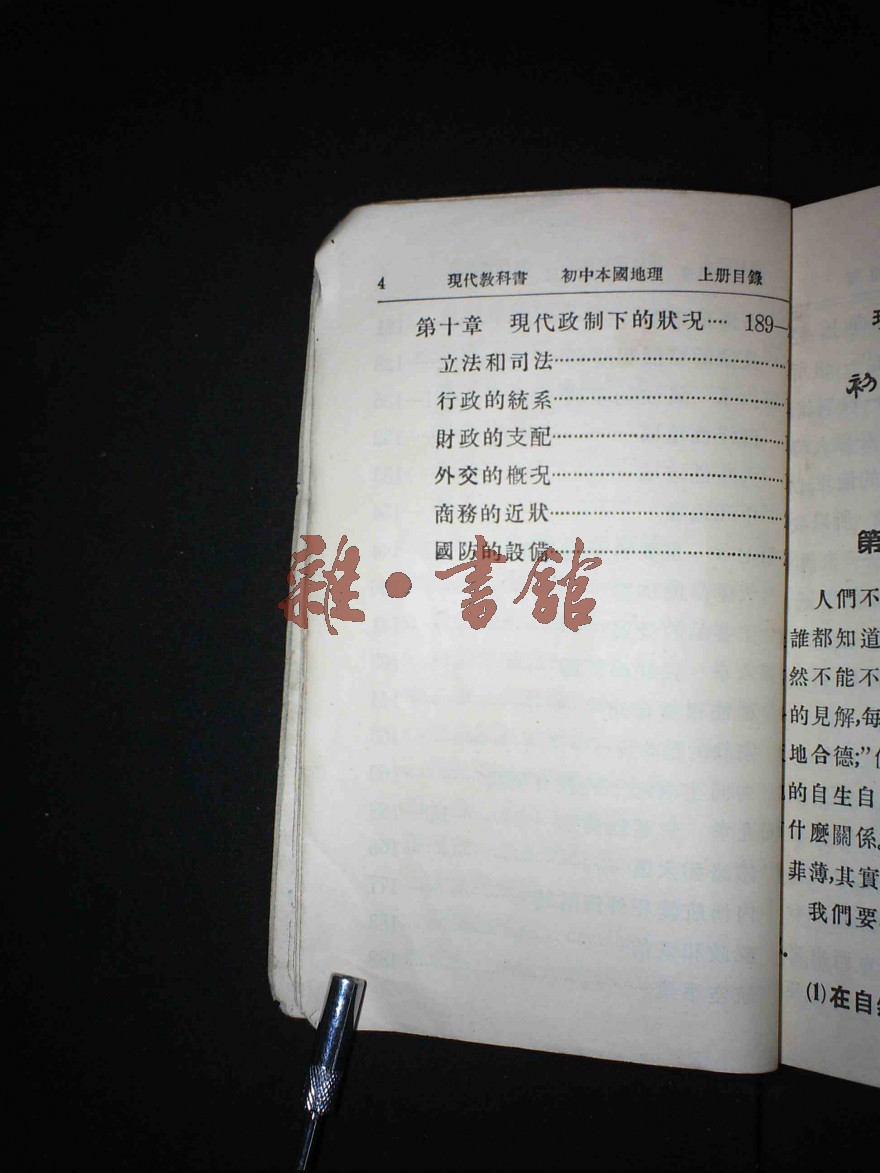 4 現代教科書 初中本國地理 上册目錄
第十章 現代政制下的狀况···· 189—
立法和司法
行政的統系
財政的支配
外交的概况
商務的近狀
國防的設備
雜·書館
初
第
人們不
誰都知道
然不能不
的見解,每
地合德;”
的自生自
什麽關係。
菲薄,其實
我們要
(1)在自